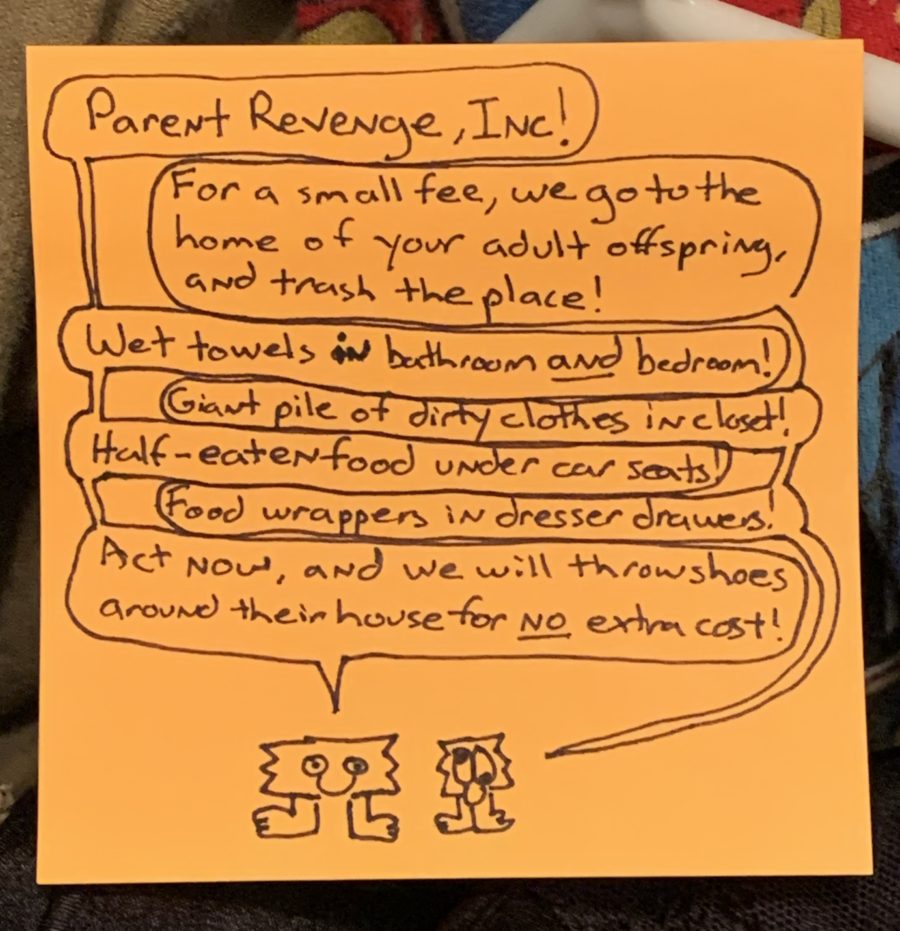 Parent Revenge, Inc!
For a small fee, we go to the
home of your adult offspring,
and trash the place!
Wet towels in bathroom and bedroom!
Giant pile of dirty clothes in closet!
Half-eaten food under car seats!
Food wrappers in dresser drawers!
Act now, and we will throw shoes
around their house for NO extra cost!